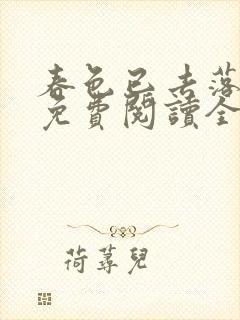 春色已去落
免費閱讀全
荷蕁兒